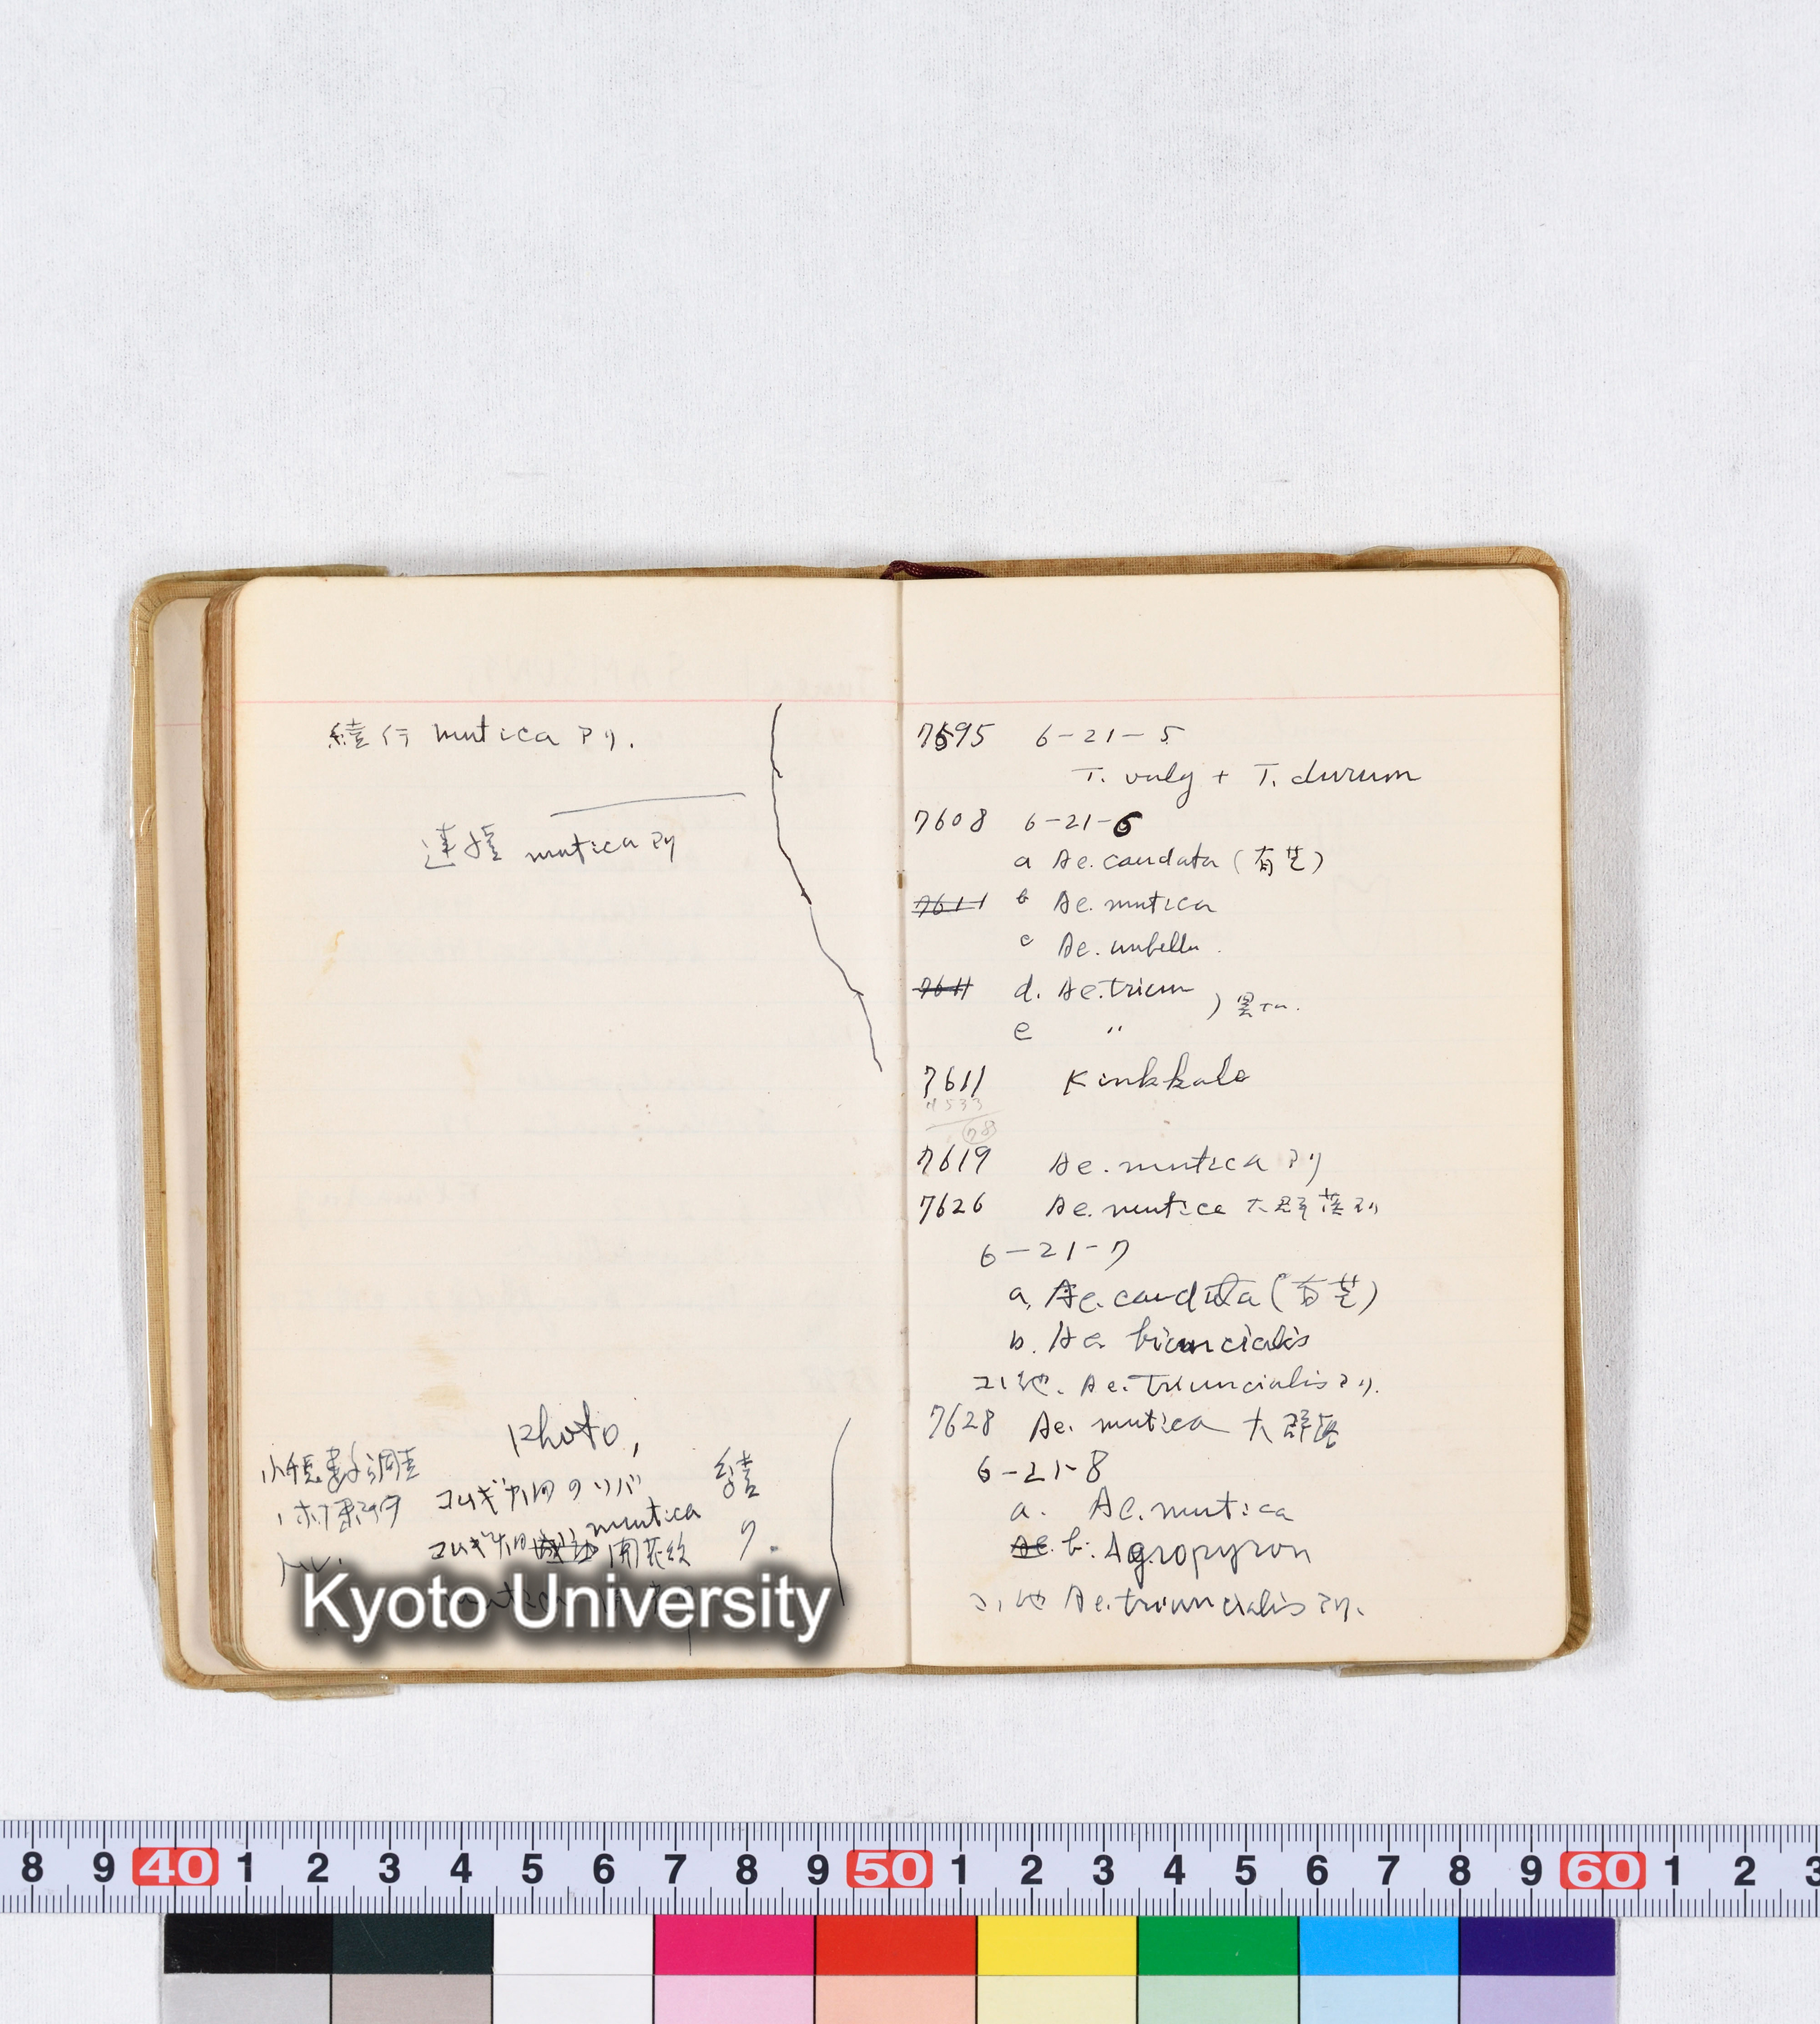 続行 mutica アリ.
連續 mutica アリ
Photo,
小穂数調査
コムギ畑のソバ
mutica
コムギ畑 開花
続ク.
7595 6-21-5
T. vulg + T. durum
7608 6-21-6
a Ae. caudata (有芒)
7611 b Ae. mutica
c Ae. umbellu.
7611 d. Ae. trium
e 〃
7611 Kırıkkale
4533
78
7619 Ae. mutica アリ
7626 Ae. mutica 大群落アリ
6-21-7
a. Ae. caudata (有芒)
b. Ae biuncialis
コノ他. Ae. triuncialis アリ.
7628 Ae. mutica 大群落
6-21-8
a. Ae. mutica
Ae. b. Agropyron
コノ他 Ae. triuncialis アリ.
Kyoto University
8 9 40 1 2 3 4 5 6 7 8 9 50 1 2 3 4 5 6 7 8 9 60 1 2 3